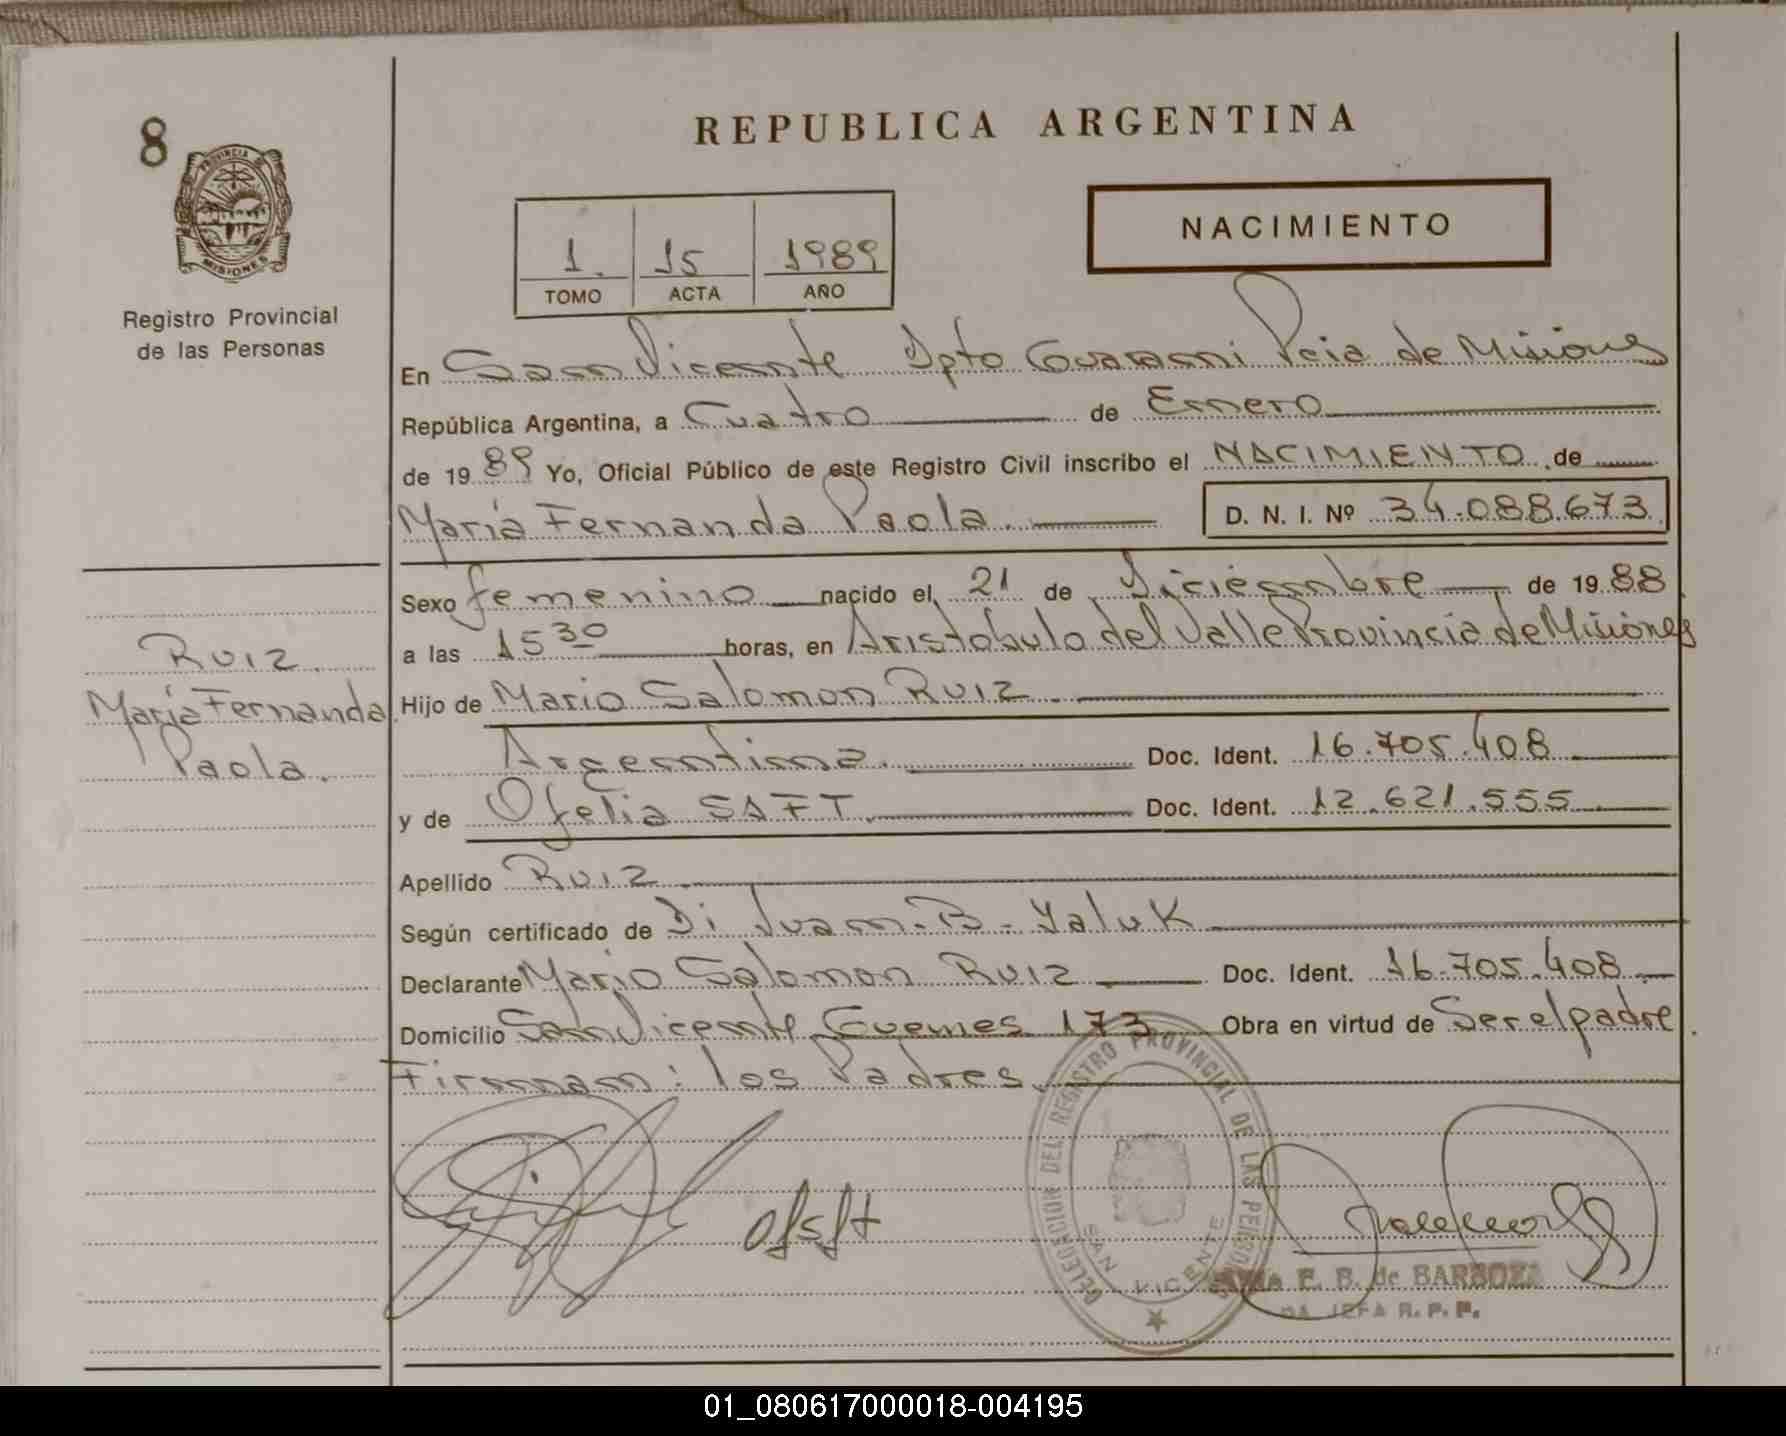 8
PROVINCIA DE
MISIONES
Registro Provincial
de las Personas
REPUBLICA ARGENTINA
1. 15 1989
TOMO ACTA AÑO
NACIMIENTO
En San Vicente Dpto Guarani Pcia de Misiones
República Argentina, a Cuatro de Enero
de 1989 Yo, Oficial Público de este Registro Civil inscribo el NACIMIENTO de
María Fernanda Paola. D. N. I. Nº 34.088.673
Sexo femenino nacido el 21 de Diciembre de 1988
a las 15 30 horas, en Aristobulo del Valle Provincia de Misiones
Ruiz
María Fernanda
Paola.
Hijo de Mario Salomon Ruiz
Argentina. Doc. Ident. 16.705.408
y de Ofelia SAFT. Doc. Ident. 12.621.555
Apellido Ruiz
Según certificado de Di Juan-B-Yaluk
Declarante Mario Salomon Ruiz Doc. Ident. 16.705.408
Domicilio San Vicente Guemes 173 Obra en virtud de Ser el padre.
Firman: los Padres.
DELEGACION DEL REGISTRO PROVINCIAL DE LAS PERSONAS
SAN VICENTE
E. B. de BARBOZA
JEFA R. P. P.
01_080617000018-004195